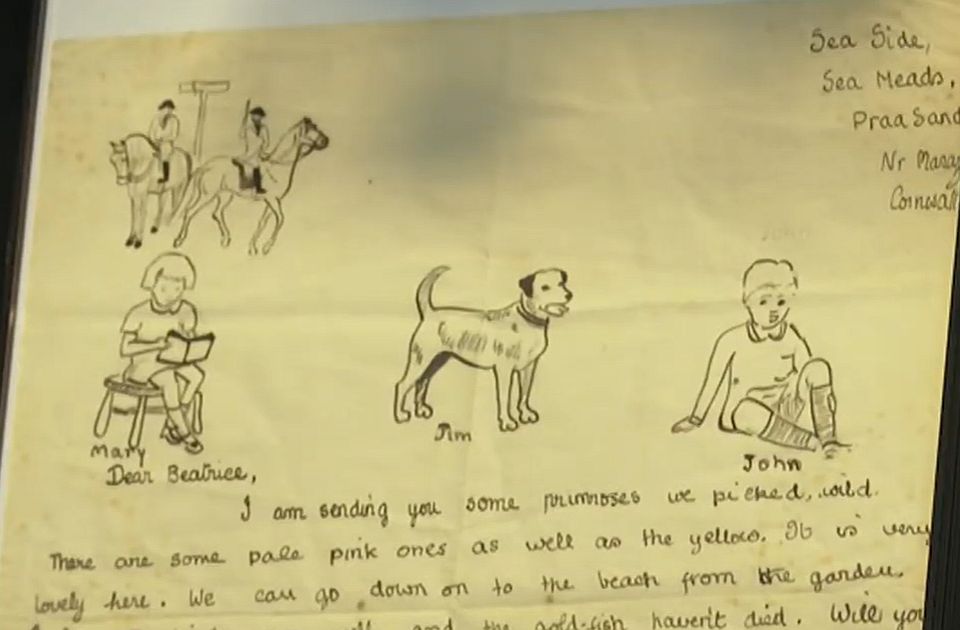 Sea Side,
Sea Meads,
Praa Sand
Nr
Cornwall
Mary
Jim
John
Dear Beatrice,
I am sending you some primroses we picked, wild.
There are some pale pink ones as well as the yellow. It is very
lovely here. We can go down on to the beach from the garden.
and the gold-fish haven't died. Will you